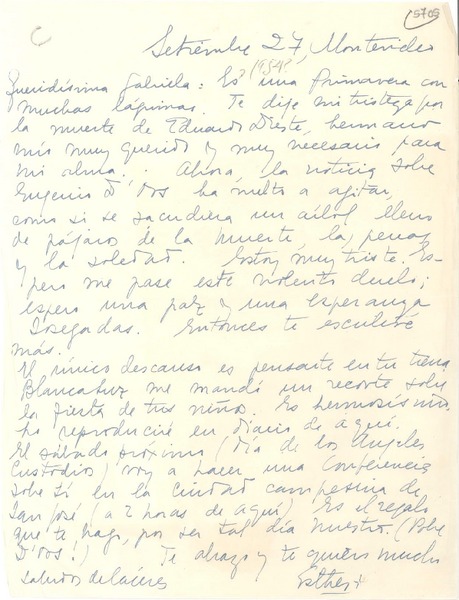 5705
Setiembre 27, Montevideo
¿1954?
Queridísima Gabriela: Es una Primavera con
muchas lágrimas. Te dije mi tristeza por
la muerte de Eduardo Dieste, hermano
mío muy querido y muy necesario para
mi alma... Ahora, la noticia sobre
Eugenio D'Ors ha vuelto a agitar,
como si se sacudiera un árbol lleno
de pájaros de la muerte, las penas
y la soledad. Estoy muy triste. Es-
pero me pase este violento duelo;
espero una paz y una esperanza
sosegadas. Entonces te escribiré
más.
El único descanso es pensarte en tu tierra
Blancaluz me mandó un recorte sobre
la fiesta de tus niños. Es hermosísimo.
Lo reproduciré en diario de aquí.
El sábado próximo (día de los Angeles
Custodios) voy a hacer una Conferencia
sobre tí en la ciudad campesina de
San José (a 2 horas de aquí) Es el regalo
que te hago, por ser tal día nuestro. (Pobre
D'Ors!) Te abrazo y te quiero mucho
saludos de Cáceres Esther